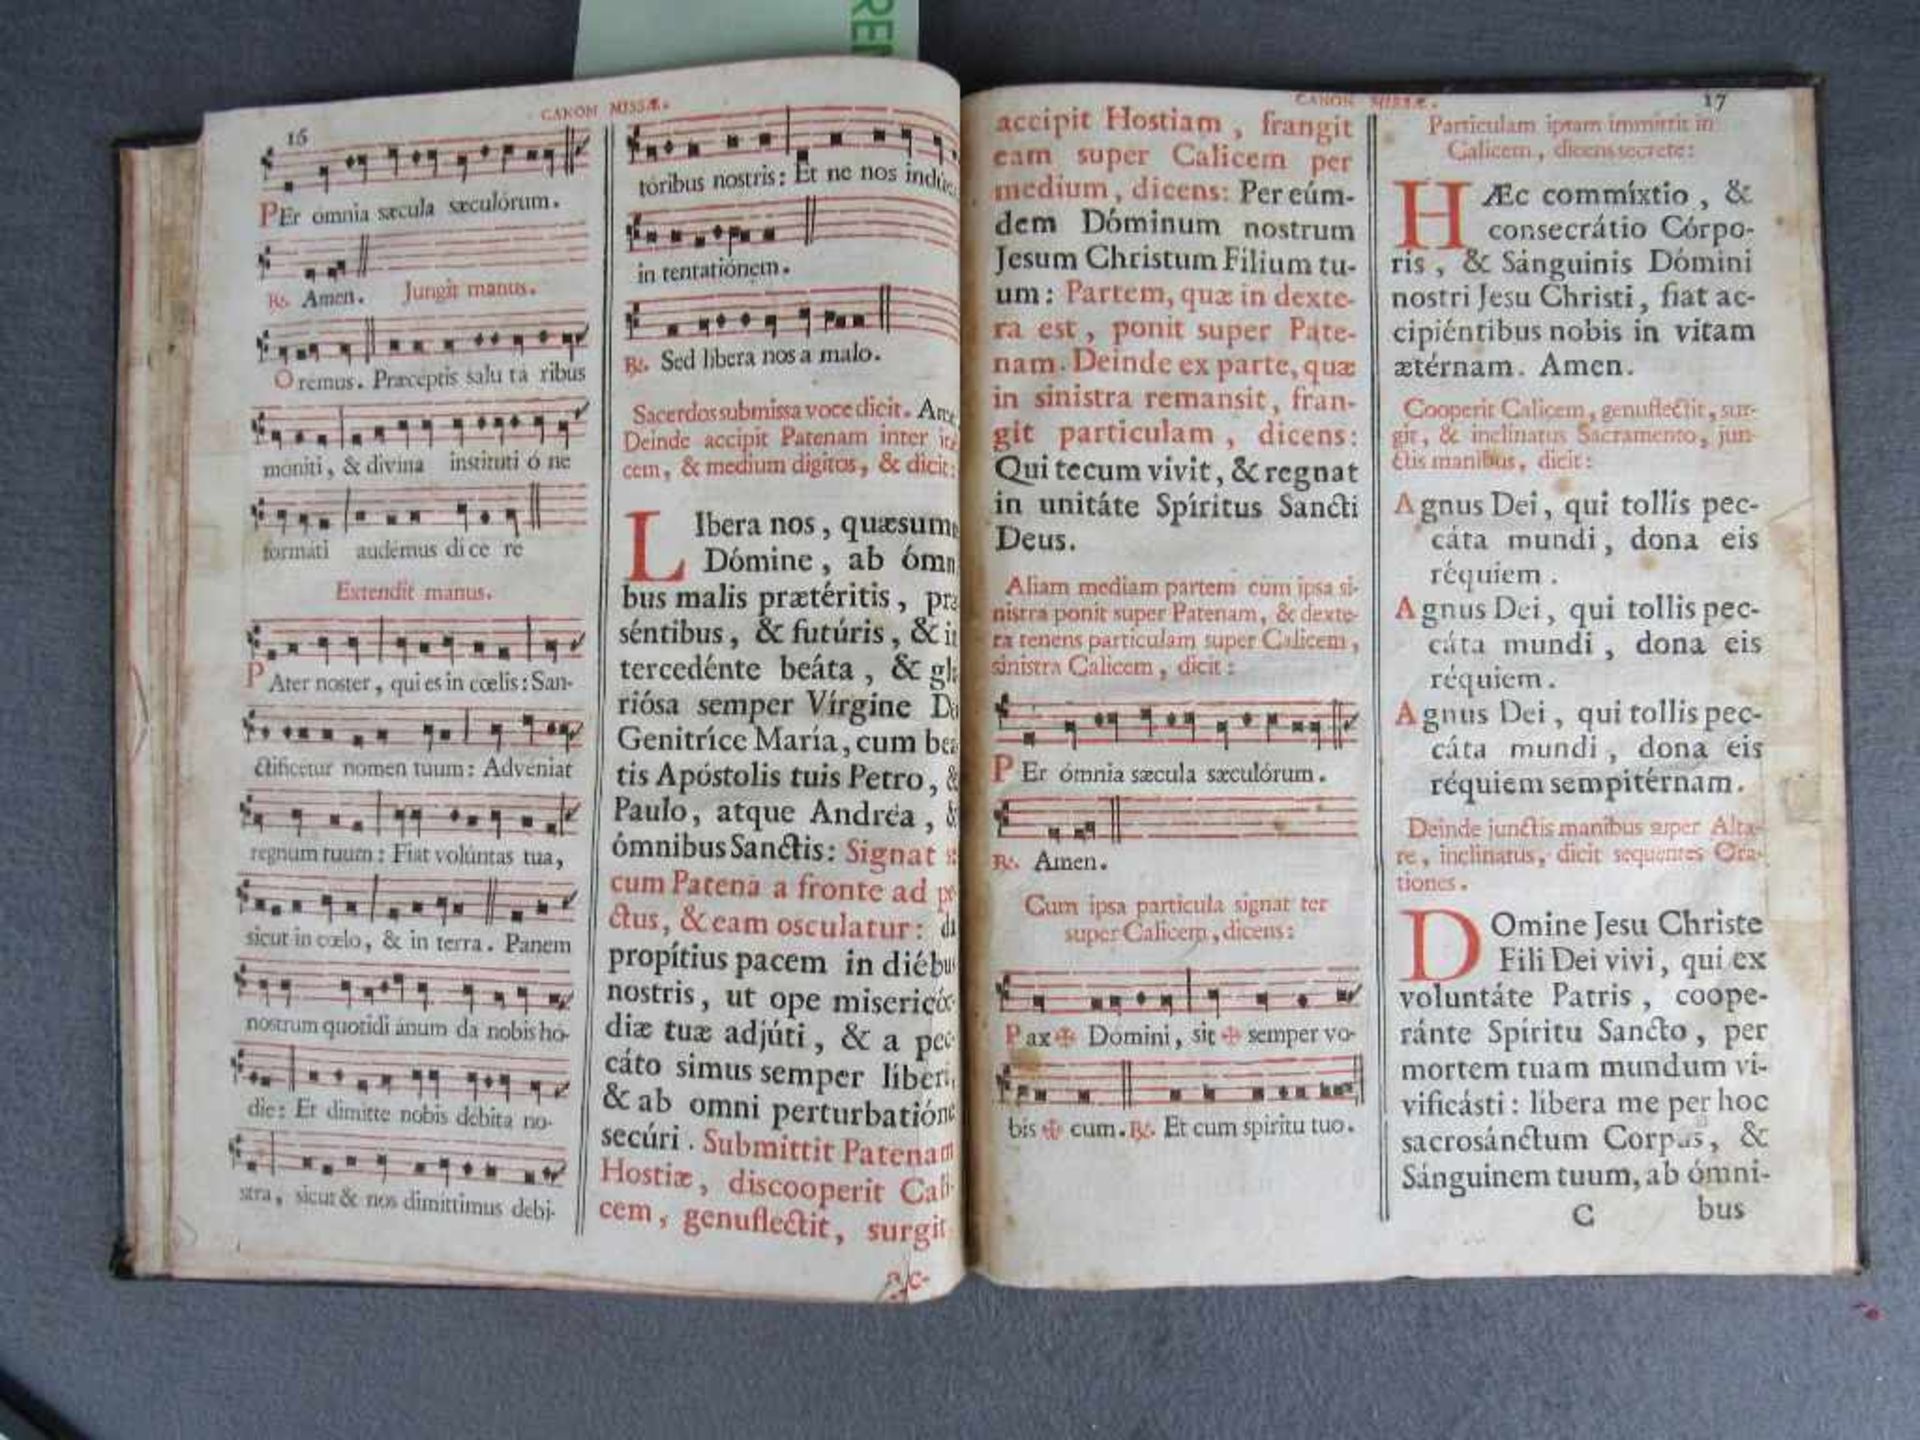 REN
16
CANON MISSÆ.
PEr ómnia sæcula sæculórum.
℟. Amen. Jungit manus.
Oremus. Præceptis salu ta ribus
moniti, & divina instituti ó ne
formáti audemus di ce re
Extendit manus.
PAter noster, qui es in cœlis: San-
ctificetur nomen tuum: Advéniat
regnum tuum: Fiat volúntas tua,
sicut in cœlo, & in terra. Panem
nostrum quotidi ánum da nobis hó-
die: Et dimitte nobis debita no-
stra, sicut & nos dimittimus debi-
tóribus nostris: Et ne nos indúc
in tentatiónem.
℟. Sed libera nos a malo.
Sacerdos submissa voce dicit. Ame
Deinde accipit Patenam inter in
cem, & medium digitos, & dicit:
LIbera nos, quæsum
Dómine, ab ómn
bus malis prætéritis, præ
séntibus, & futúris, & in
tercedénte beáta, & glo
riósa semper Vírgine De
Genitríce María, cum bea
tis Apóstolis tuis Petro, &
Paulo, atque Andréa, &
ómnibus Sanctis: Signat
cum Patena a fronte ad pe
ctus, & eam osculatur: da
propítius pacem in diébus
nostris, ut ope misericór-
diæ tuæ adjúti, & a pec-
cáto simus semper líberi,
& ab omni perturbatióne
secúri. Submittit Patenam
Hostiæ, discooperit Cali-
cem, genuflectit, surgit,
ac-
CANON MISSÆ.
17
accipit Hostiam, frangit
eam super Calicem per
medium, dicens: Per eúm-
dem Dóminum nostrum
Jesum Christum Fílium tu-
um: Partem, quæ in dexte-
ra est, ponit super Pate-
nam. Deinde ex parte, quæ
in sinistra remansit, fran-
git particulam, dicens:
Qui tecum vivit, & regnat
in unitáte Spíritus Sancti
Deus.
Aliam mediam partem cum ipsa si-
nistra ponit super Patenam, & dexte-
ra tenens particulam super Calicem,
sinistra Calicem, dicit:
PEr ómnia sæcula sæculórum.
℟. Amen.
Cum ipsa particula signat ter
super Calicem, dicens:
Pax ✠ Domini, sit ✠ semper vo-
bis ✠ cum. ℟. Et cum spiritu tuo.
Particulam ipsam immittit in
Calicem, dicens secrete:
HÆc commíxtio, &
consecrátio Córpo-
ris, & Sánguinis Dómini
nostri Jesu Christi, fiat ac-
cipiéntibus nobis in vitam
ætérnam. Amen.
Cooperit Calicem, genuflectit, sur-
git, & inclinatus Sacramento, jun-
ctis manibus, dicit:
Agnus Dei, qui tollis pec-
cáta mundi, dona eis
réquiem.
Agnus Dei, qui tollis pec-
cáta mundi, dona eis
réquiem.
Agnus Dei, qui tollis pec-
cáta mundi, dona eis
réquiem sempitérnam.
Deinde junctis manibus super Alta-
re, inclinatus, dicit sequentes Ora-
tiones.
DOmine Jesu Christe
Fili Dei vivi, qui ex
voluntáte Patris, coope-
ránte Spíritu Sancto, per
mortem tuam mundum vi-
vificásti: libera me per hoc
sacrosánctum Corpus, &
Sánguinem tuum, ab ómni-
C bus